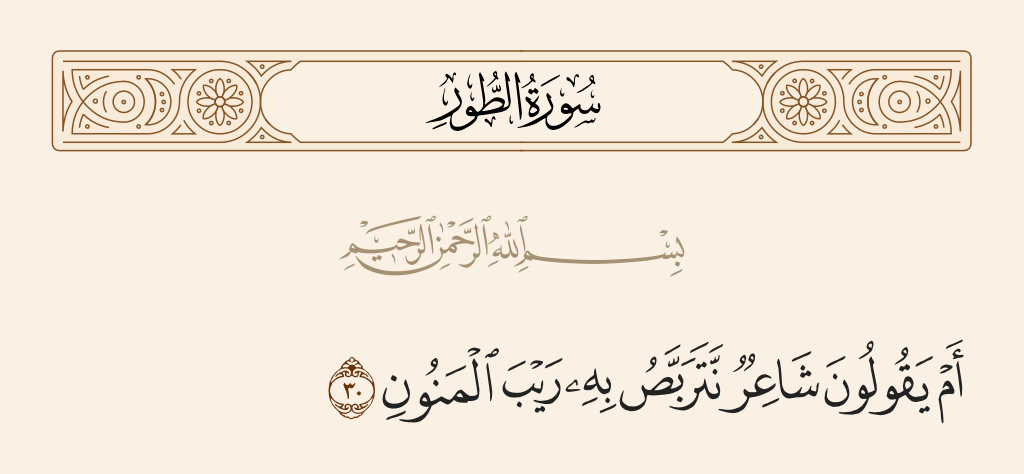 سُورَةُ الطُّورِ
بِسْمِ ٱللَّهِ ٱلرَّحْمَٰنِ ٱلرَّحِيمِ
أَمْ يَقُولُونَ شَاعِرٌۭ نَّتَرَبَّصُ بِهِۦ رَيْبَ ٱلْمَنُونِ ٣٠